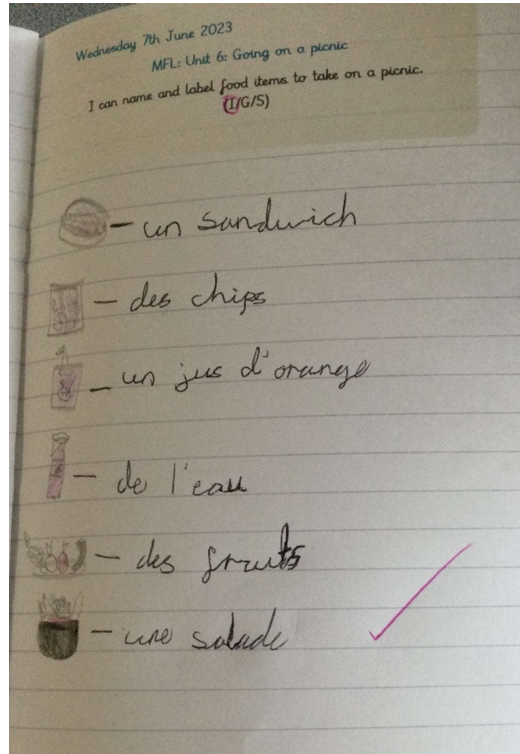 Wednesday 7th June 2023
MFL: Unit 6: Going on a picnic
I can name and label food items to take on a picnic.
(I/G/S)
– un sandwich
– des chips
– un jus d'orange
– de l'eau
– des fruits
– une salade